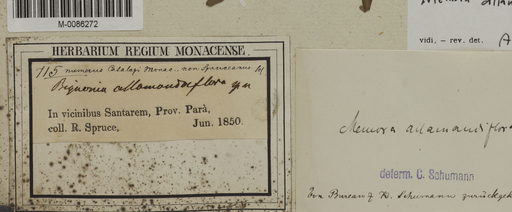 M-0086272
HERBARIUM REGIUM MONACENSE.
115 numerus Catalogi Monac., non Spruceanus
Bignonia allamandiflora
In vicinibus Santarem, Prov. Parà,
coll. R. Spruce, Jun. 1850.
vidi, – rev. det.
Memora allamandiflora
determ. C. Schumann
Von Bureau z K. Schumann zurückge